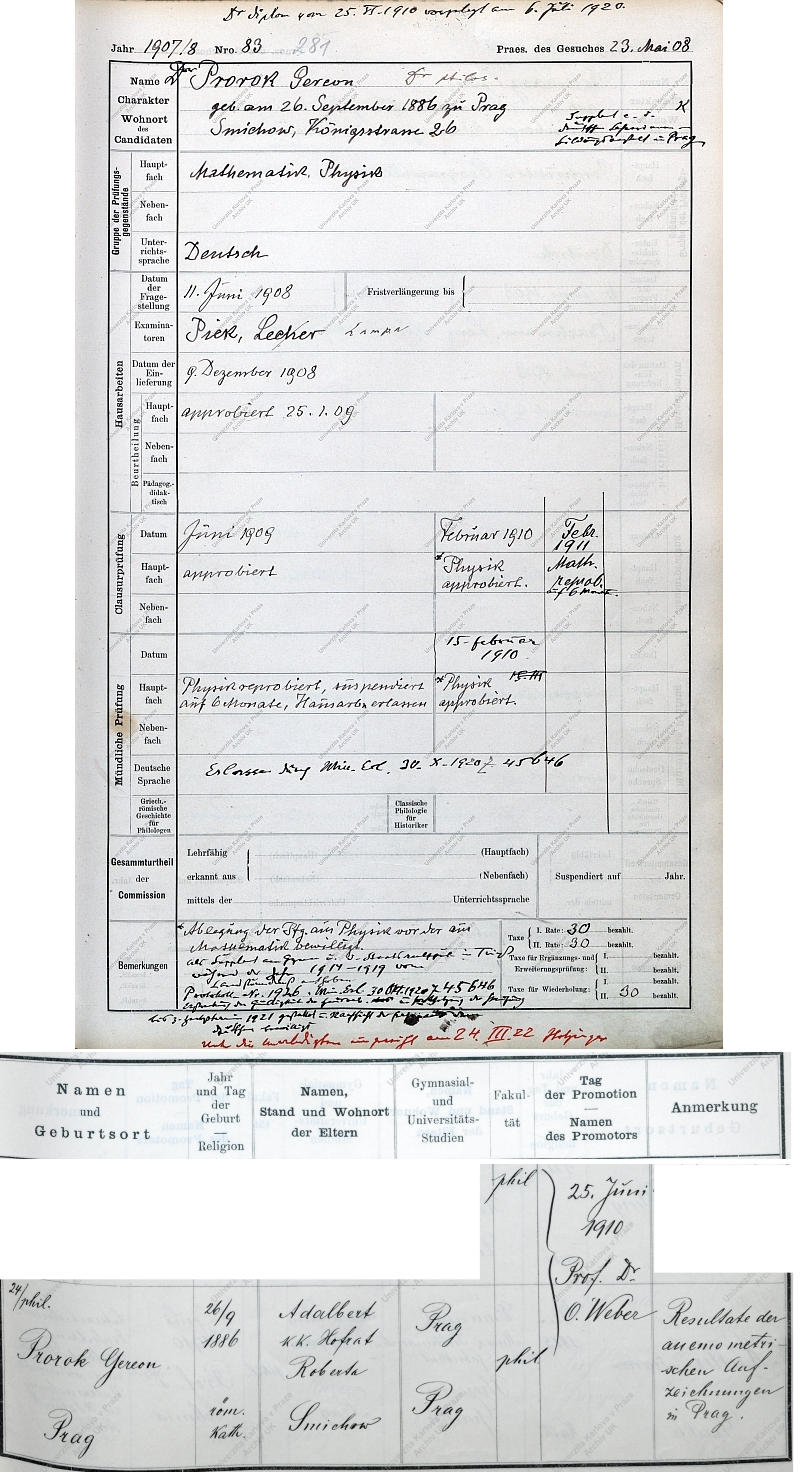 Dr diplom vom 25. VI. 1910 vorgelegt am 6. Juli 1920.
Jahr 1907/8 Nro. 83 281 Praes. des Gesuches 23. Mai 08
Name Prorok Gereon Dr philos.
Charakter
Wohnort
des
Candidaten
geb. am 26. September 1886 zu Prag
Smichow, Königsstrasse 26
Supplent a. d.
deutschen
in Prag
Gruppe der Prüfungs-
gegenstände
Haupt-
fach
Mathematik, Physik
Neben-
fach
Unter-
richts-
sprache
Deutsch
Hausarbeiten
Datum
der
Frage-
stellung
11. Juni 1908
Fristverlängerung bis
Examina-
toren
Pick, Lecher Lampa
Datum der
Ein-
lieferung
9. Dezember 1908
Beurtheilung
Haupt-
fach
approbiert 25.1.09
Neben-
fach
Pädagog.-
didak-
tisch
Clausurprüfung
Datum
Juni 1909
Februar 1910
Febr.
1911
Haupt-
fach
approbiert
* Physik
approbiert.
Math.
reprob.
auf 6 Monat.
Neben-
fach
Mündliche Prüfung
Datum
15. Februar
1910
Haupt-
fach
Physik reprobiert, suspendiert
auf 6 Monate, Hausarb. erlassen
* Physik
approbiert.
Neben-
fach
Deutsche
Sprache
Erlassen Min. Erl. 30. X. 1920 Z 45646
Griech.-
römische
Geschichte
für
Philologen
Classische
Philologie
für
Historiker
Gesammturtheil
der
Commission
Lehrfähig (Hauptfach)
erkannt aus (Nebenfach)
mittels der Unterrichtssprache
Suspendiert auf Jahr.
Bemerkungen
* Ablegung der Pfg. aus Physik vor der aus
Mathematik bewilligt.
als Supplent am
während der Jahre 1914-1919 vom
Protokoll Nr. 1926. Min. Erl. 30 Okt. 1920 Z 45646
1921
Taxe I. Rate: 30 bezahlt.
II. Rate: 30 bezahlt.
Taxe für Ergänzungs- und
Erweiterungsprüfung:
I. bezahlt.
II. bezahlt.
Taxe für Wiederholung:
I. bezahlt.
II. 30 bezahlt.
am 24. III. 22
Namen
und
Geburtsort
Jahr
und Tag
der
Geburt
Religion
Namen,
Stand und Wohnort
der Eltern
Gymnasial-
und
Universitäts-
Studien
Fakul-
tät
Tag
der Promotion
Namen
des Promotors
Anmerkung
phil
25. Juni
1910
Prof. Dr.
O. Weber
24/phil.
Prorok Gereon
Prag
26/9
1886
röm.
Kath.
Adalbert
k.k. Hofrat
Roberta
Smichow
Prag
Prag
phil
Resultate der
anemometri-
schen Auf-
zeichnungen
in Prag.
Univerzita Karlova v Praze
Archiv UK